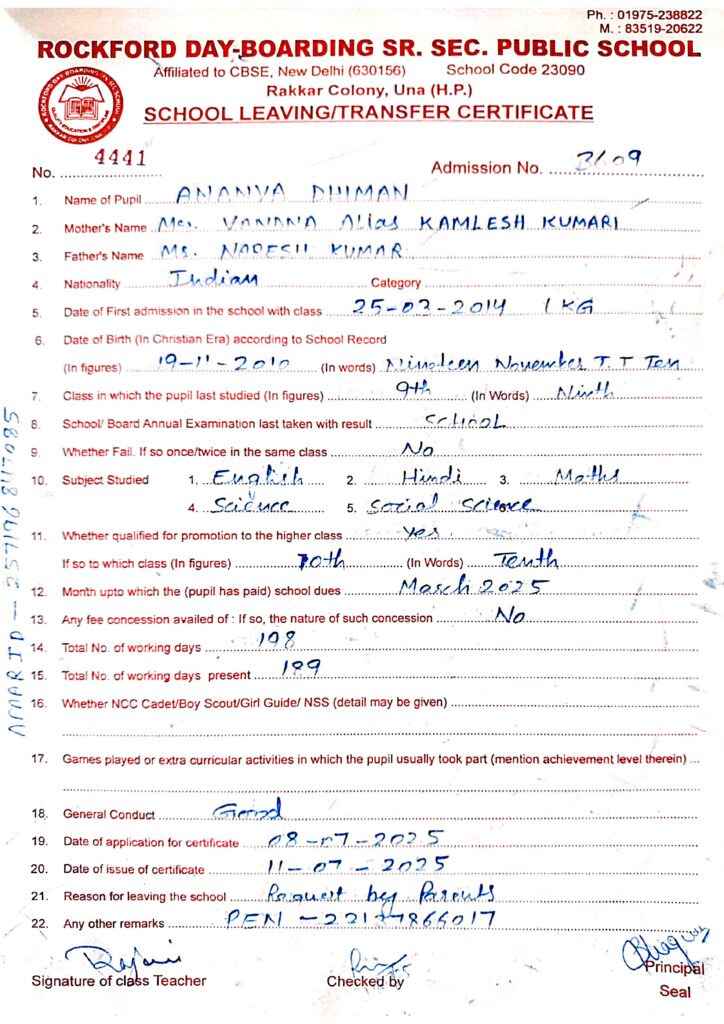 Ph. : 01975-238822
M. : 83519-20622
ROCKFORD DAY-BOARDING SR. SEC. PUBLIC SCHOOL
Affiliated to CBSE, New Delhi (630156) School Code 23090
Rakkar Colony, Una (H.P.)
SCHOOL LEAVING/TRANSFER CERTIFICATE
No. 4441 Admission No. 3609
1. Name of Pupil ANANYA DHIMAN
2. Mother's Name Mrs. VANANA Alias KAMLESH KUMARI
3. Father's Name Mr. NARESH KUMAR
4. Nationality Indian Category
5. Date of First admission in the school with class 25-03-2014 1 KG
6. Date of Birth (In Christian Era) according to School Record
(In figures) 19-11-2010 (In words) Nineteen November T.T Ten
7. Class in which the pupil last studied (In figures) 9th (In Words) Ninth
8. School/ Board Annual Examination last taken with result SCHOOL
9. Whether Fail. If so once/twice in the same class No
10. Subject Studied 1. English 2. Hindi 3. Maths
4. Science 5. Social Science
11. Whether qualified for promotion to the higher class Yes
If so to which class (In figures) 10th (In Words) Tenth
12. Month upto which the (pupil has paid) school dues March 2025
13. Any fee concession availed of : If so, the nature of such concession No
14. Total No. of working days 198
15. Total No. of working days present 189
16. Whether NCC Cadet/Boy Scout/Girl Guide/ NSS (detail may be given)
17. Games played or extra curricular activities in which the pupil usually took part (mention achievement level therein)
18. General Conduct Good
19. Date of application for certificate 08-07-2025
20. Date of issue of certificate 11-07-2025
21. Reason for leaving the school Request by Parents
22. Any other remarks PEN - 22177866017
Rajni
Signature of class Teacher Checked by Principal
Seal
APAAR ID - 257196847085